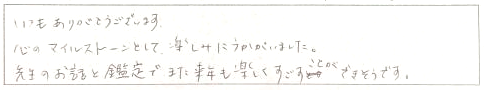 いつもありがとうございます。
心のマイルストーンとして、楽しみにうかがいました。
先生のお話と鑑定でまた来年も楽しくすごすことができそうです。